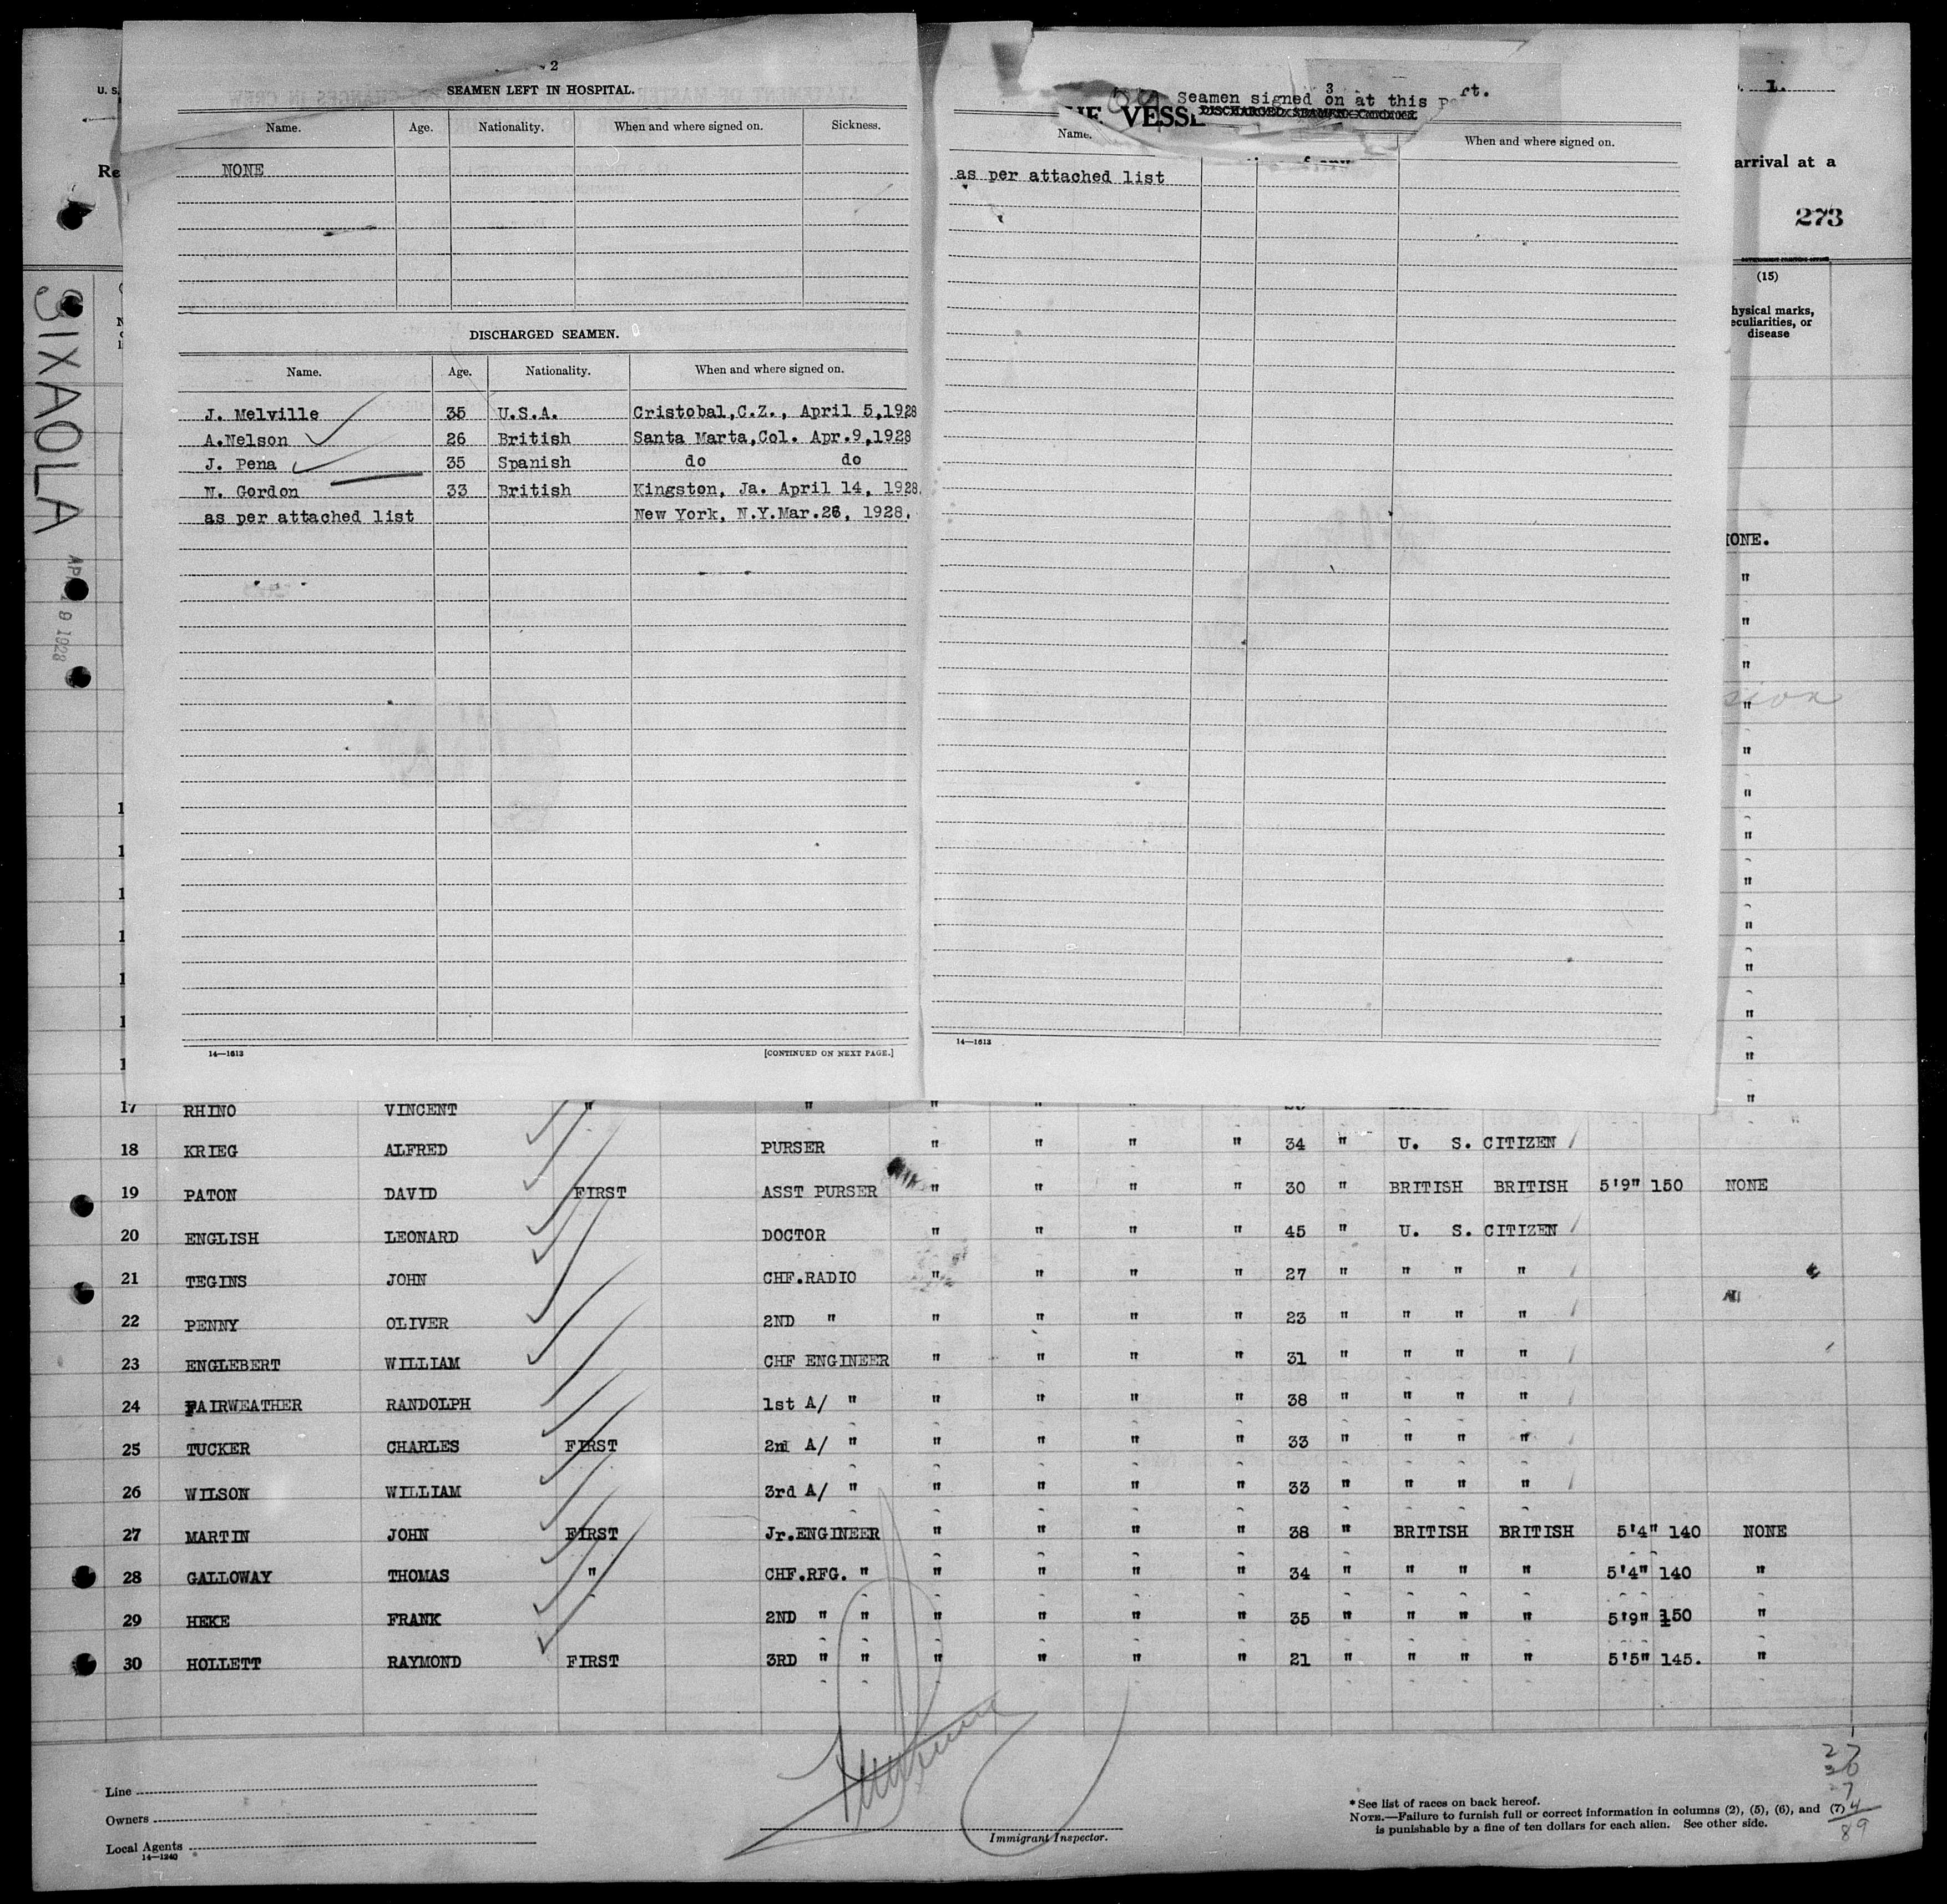 2
SEAMEN LEFT IN HOSPITAL.
Name. Age. Nationality. When and where signed on. Sickness.
NONE
DISCHARGED SEAMEN.
Name. Age. Nationality. When and where signed on.
J. Melville 35 U.S.A. Cristobal,C.Z., April 5,1928
A.Nelson 26 British Santa Marta,Col. Apr.9,1928
J. Pena 35 Spanish do do
N. Gordon 33 British Kingston, Ja. April 14, 1928.
as per attached list New York, N.Y.Mar.26, 1928.
14—1613 [CONTINUED ON NEXT PAGE.]
3
Seamen signed on at this p rt.
VESSE
DISCHARGED SEAMEN
Name. When and where signed on.
as per attached list
14—1613
U. S.
Re
1.
arrival at a
273
(15)
hysical marks,
eculiarities, or
disease
SIXAOLA
AP 9 1928
IONE.
"
"
"
sion
"
"
"
"
"
"
"
"
"
"
17 RHINO VINCENT " " " " " "
18 KRIEG ALFRED PURSER " " " " 34 " U. S. CITIZEN
19 PATON DAVID FIRST ASST PURSER " " " " 30 " BRITISH BRITISH 5'9" 150 NONE
20 ENGLISH LEONARD DOCTOR " " " " 45 " U. S. CITIZEN
21 TEGINS JOHN CHF.RADIO " " " " 27 " " " "
22 PENNY OLIVER 2ND " " " " " 23 " " " "
23 ENGLEBERT WILLIAM CHF ENGINEER " " " " 31 " " " "
24 FAIRWEATHER RANDOLPH 1st A/ " " " " " 38 " " " "
25 TUCKER CHARLES FIRST 2nd A/ " " " " " 33 " " " "
26 WILSON WILLIAM 3rd A/ " " " " " 33 " " " "
27 MARTIN JOHN FIRST Jr.ENGINEER " " " " 38 " BRITISH BRITISH 5'4" 140 NONE
28 GALLOWAY THOMAS " CHF.RFG. " " " " " 34 " " " " 5'4" 140 "
29 HEKE FRANK 2ND " " " " " " 35 " " " " 5'9" 150 "
30 HOLLETT RAYMOND FIRST 3RD " " " " " " 21 " " " " 5'5" 145. "
Line
Owners
Local Agents
14—1240
Immigrant Inspector.
* See list of races on back hereof.
NOTE.—Failure to furnish full or correct information in columns (2), (5), (6), and (7)
is punishable by a fine of ten dollars for each alien. See other side.
27
30
7
4
89